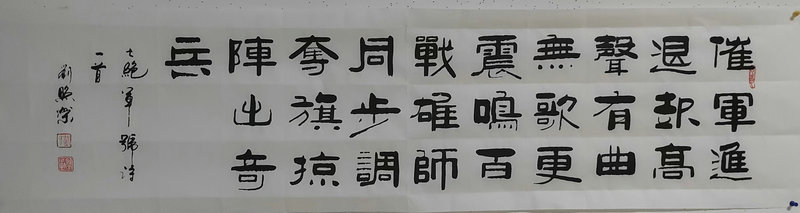 催軍進
退起高
聲有曲
無歌更
震鳴百
戰雄師
同步調
奪旗掠
陣出奇
兵
七絕軍號詩
一首
劉